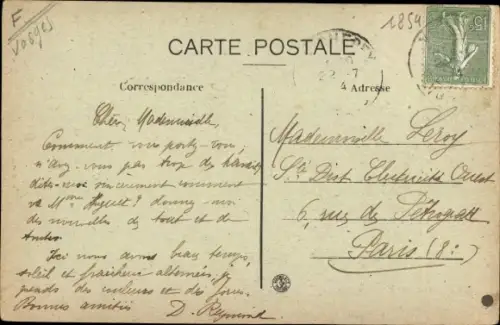 F
Vosges
1854
CARTE POSTALE
15c
22 - 7
Correspondance
Adresse
Chère Mademoiselle
Comment vous portez-vous,
n'avez vous pas trop de
dites-nous sincèrement comment
va Mme ? donnez-moi
des nouvelles de tout et de
Ici nous avons beau temps,
soleil et fraîcheur alternées, je
prends des couleurs et des joues.
Bonnes amitiés D. Reymond
Mademoiselle Leroy
Sté Dist Electricité Ouest
6, rue de Pétrograd
Paris (8e)